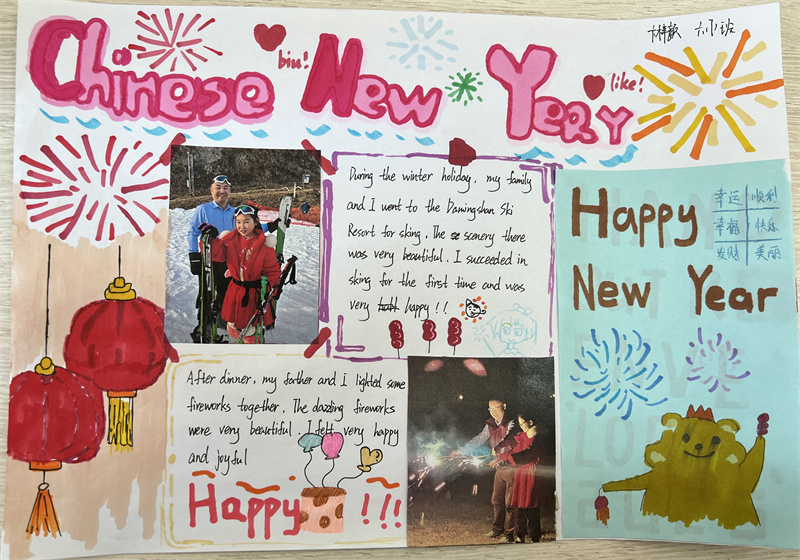 Chinese New Yery
biu!
like!
六(1)班
During the winter holiday, my family
and I went to the Damingshan Ski
Resort for skiing. The scenery there
was very beautiful. I succeeded in
skiing for the first time and was
very happy!!
Happy
New Year
幸运 顺利
幸福 快乐
发财 美丽
After dinner, my father and I lighted some
fireworks together. The dazzling fireworks
were very beautiful. I felt very happy
and joyful
Happy !!!